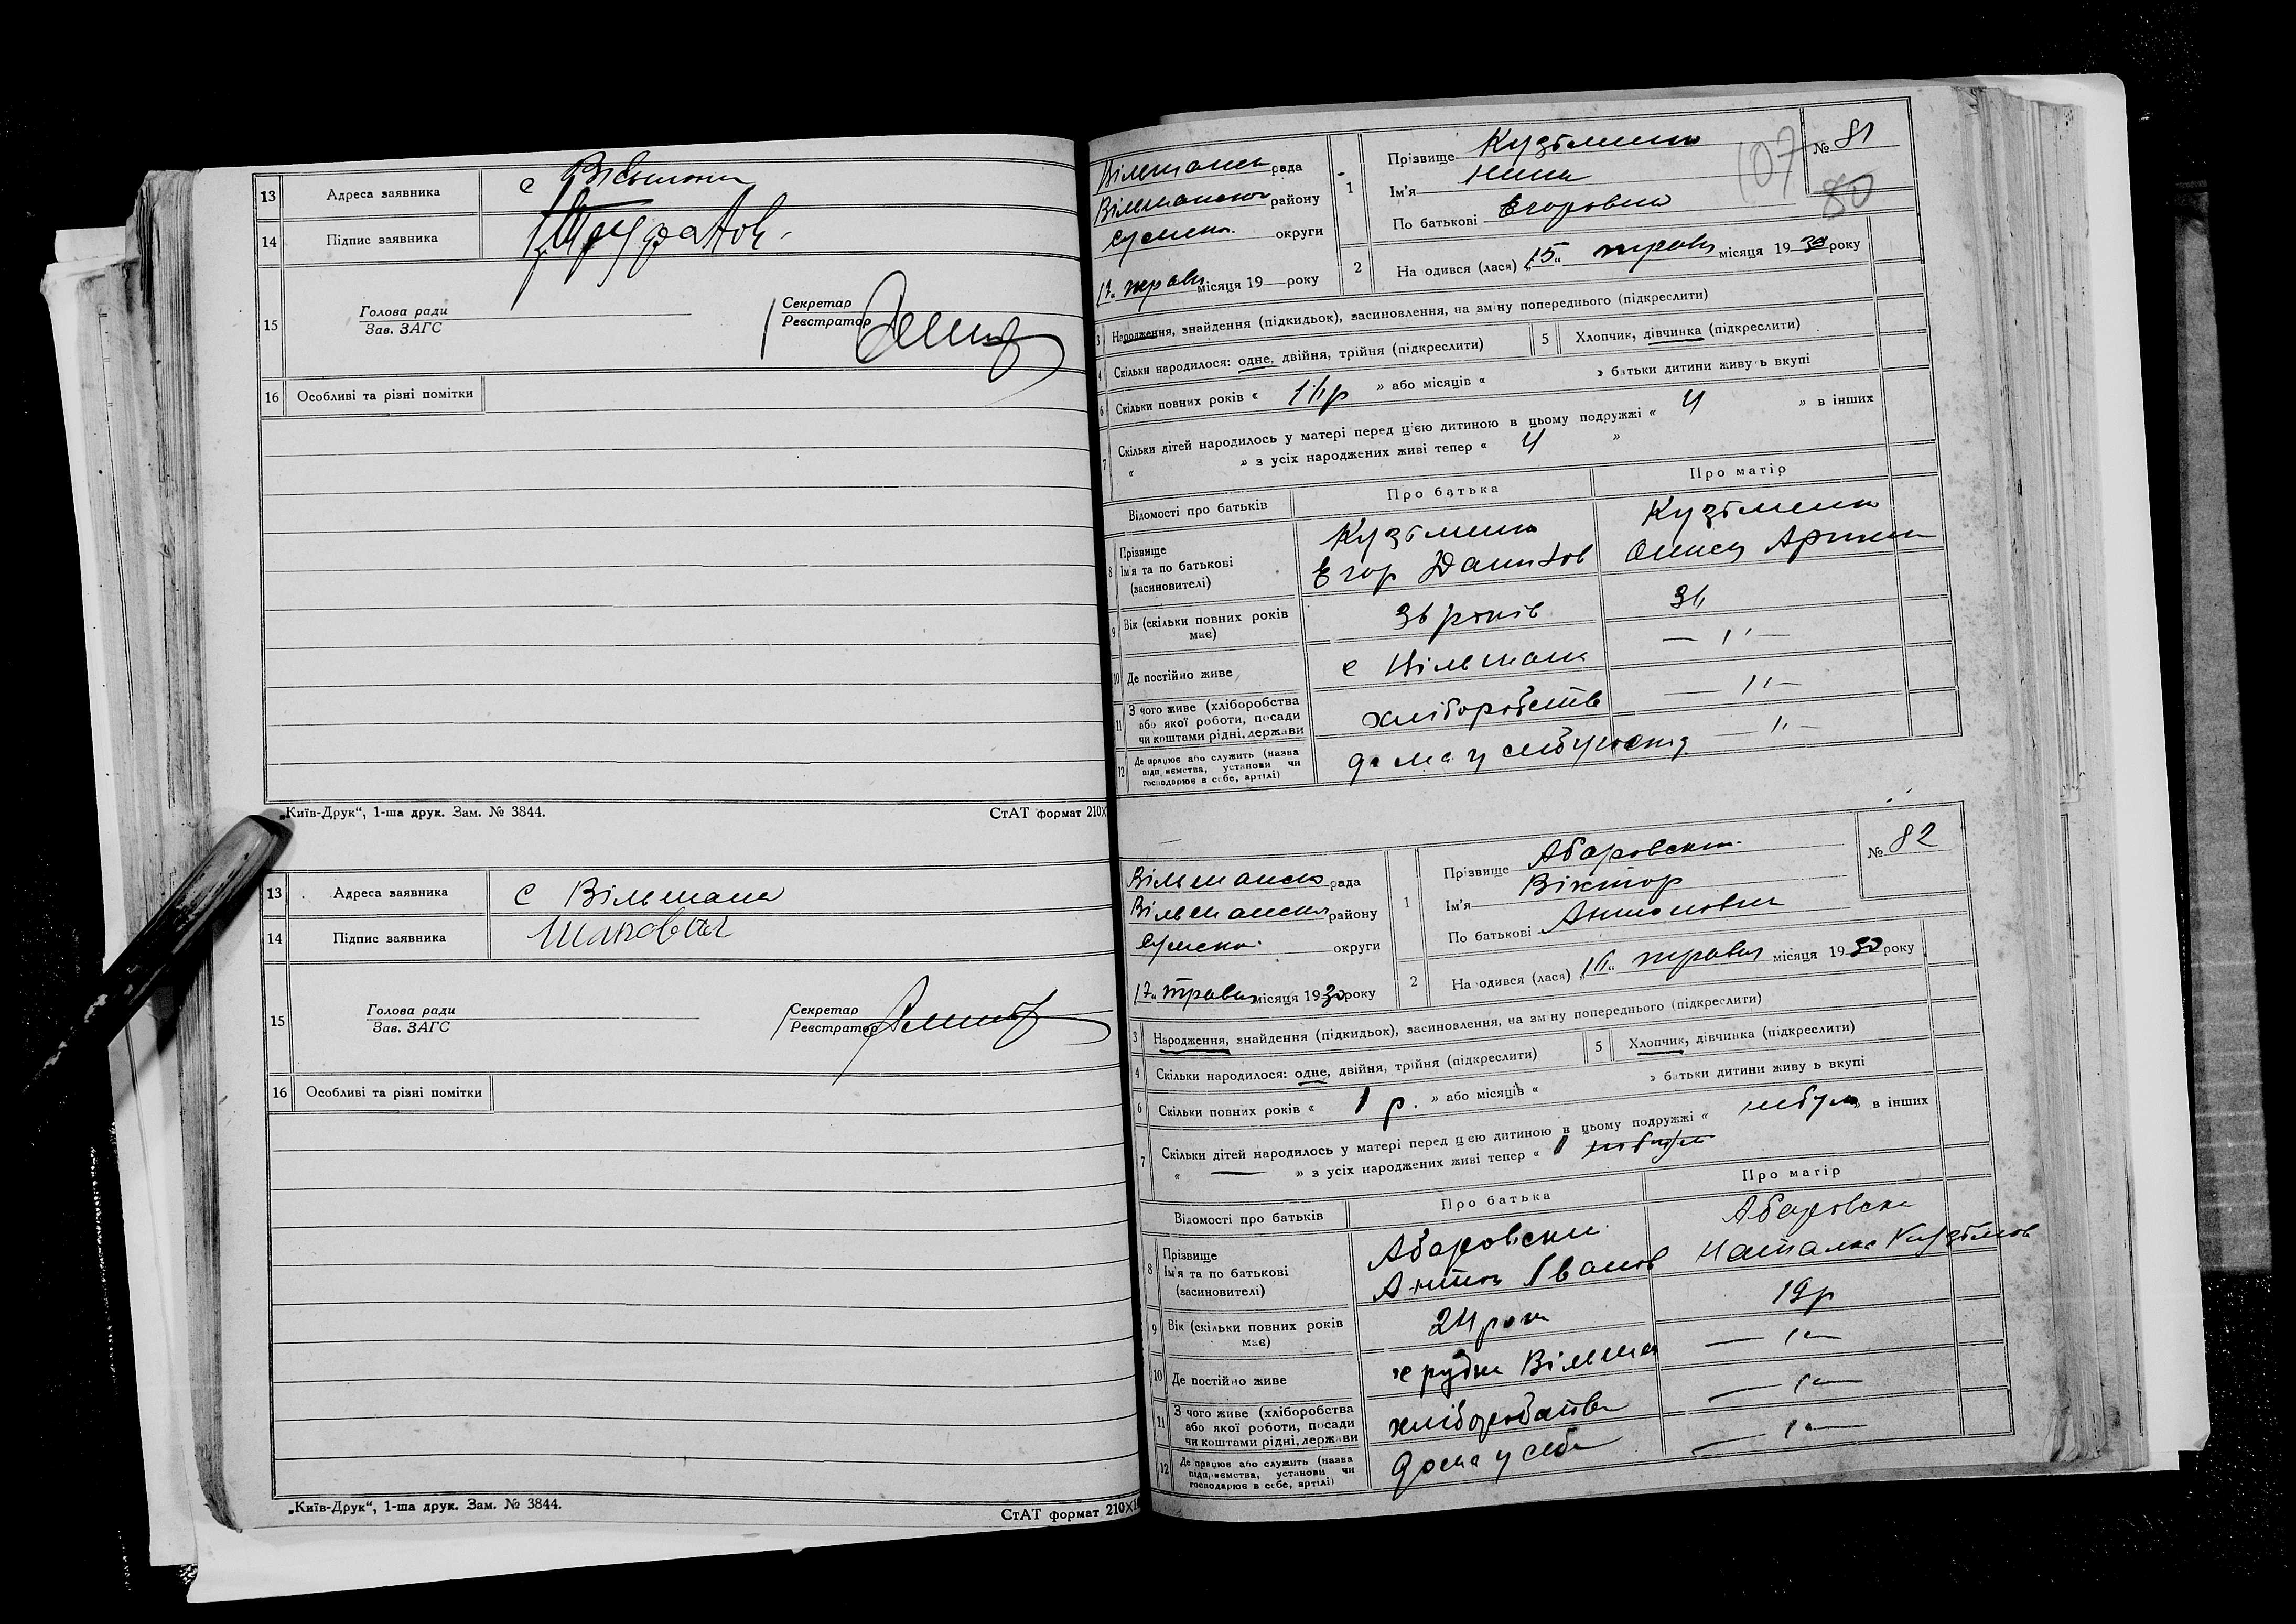 13 Адреса заявника с Вільшана
14 Підпис заявника
15 Голова ради
Зав. ЗАГС
Секретар
Реєстратор
16 Особливі та різні помітки
„Київ-Друк“, 1-ша друк. Зам. № 3844.
СтАТ формат 210X
13 Адреса заявника с Вільшана
14 Підпис заявника
15 Голова ради
Зав. ЗАГС
Секретар
Реєстратор
16 Особливі та різні помітки
„Київ-Друк“, 1-ша друк. Зам. № 3844.
СтАТ формат 210X
Вільшанськ рада
Вільшанськ району
Сумськ. округи
17„ травн місяця 19 року
1 Прізвище Кузьменко
Ім'я Нина
По батькові Егоровна
№ 81
107
80
2 На одився (лася) „15„ травн місяця 1930 року
3 Народження, знайдення (підкидьок), засиновлення, на зміну попереднього (підкреслити)
4 Скільки народилося: одне, двійня, трійня (підкреслити)
5 Хлопчик, дівчинка (підкреслити)
6 Скільки повних років « » або місяців « » батьки дитини живу ь вкупі
7 Скільки дітей народилось у матері перед цією дитиною в цьому подружжі « 4 » в інших
« » з усіх народжених живі тепер « 4 »
Відомості про батьків
Про батька
Про матір
8 Прізвище
Ім'я та по батькові
(засиновителі)
Кузьменко
Егор Данилов
Кузьменко
9 Вік (скільки повних років має)
36 років
10 Де постійно живе
с Вільшана
— " —
11 З чого живе (хліборобства
або якої роботи, посади
чи коштами рідні, держави
хліборобств
— " —
12 Де працює або служить (назва
підп, иємства, установи чи
господарює в себе, артілі)
дома у
— " —
Вільшанськ рада
Вільшанськ району
Сумськ. округи
17„ травня місяця 1930 року
1 Прізвище Абаровськи
Ім'я Віктор
По батькові Антонович
№ 82
2 На одився (лася) „ травня місяця 1930 року
3 Народження, знайдення (підкидьок), засиновлення, на зміну попереднього (підкреслити)
4 Скільки народилося: одне, двійня, трійня (підкреслити)
5 Хлопчик, дівчинка (підкреслити)
6 Скільки повних років « 1 р. » або місяців « » батьки дитини живу ь вкупі
7 Скільки дітей народилось у матері перед цією дитиною в цьому подружжі « небуло » в інших
« — » з усіх народжених живі тепер « 1
Відомості про батьків
Про батька
Про матір
8 Прізвище
Ім'я та по батькові
(засиновителі)
Абаровськи
Антон Іванов
Абаровськ
Наталка Кузьмов
9 Вік (скільки повних років має)
24 рок
19 р
10 Де постійно живе
Вільша
— " —
11 З чого живе (хліборобства
або якої роботи, посади
чи коштами рідні, держави
хліборобства
— " —
12 Де працює або служить (назва
підп, иємства, установи чи
господарює в себе, артілі)
дома у себе
— " —